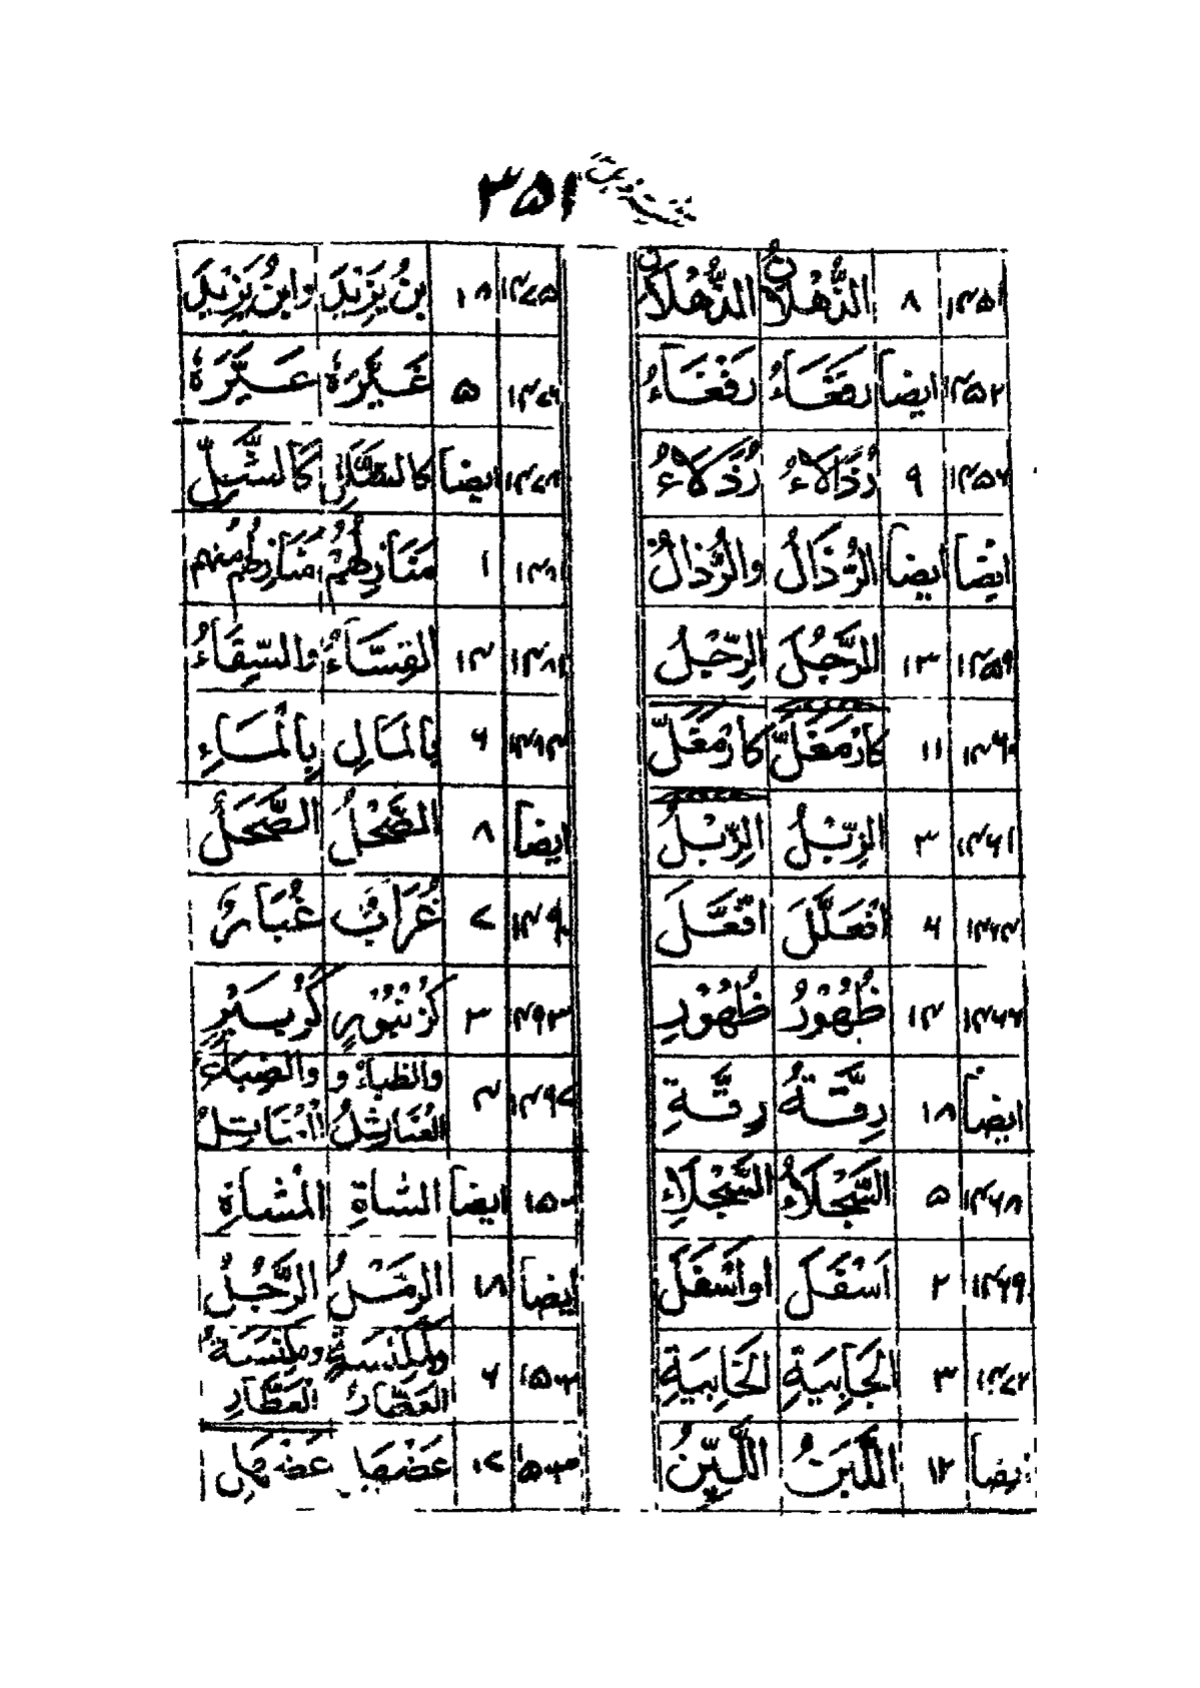 ٣٥١
١٤٥١ ٨ الذُّهْلَانُ الذُّهْلَانِ
١٤٥٢ ايضاً رَفَغَاءُ رَفْغَاءُ
١٤٥٦ ٩ رُذَّالَاءُ رُذَلَاءُ
ايضاً ايضاً الرُّذَالُ والرُّذَالُ
١٤٥٩ ١٣ الرَّجُلَ الرِّجْلُ
١٤٦٠ ١١ كَارْمَغَلَّ كَارْمَعَلَّ
١٤٦١ ٣ الزِّبْلُ الزِّبْلُ
١٤٦٤ ٤ افْعَلَّلَ افَّعَّلَ
١٤٦٦ ١٤ ظُهُوْرُ ظُهُوْرِ
ايضاً ١٨ رِقَّةُ رِقَّةِ
١٤٦٨ ٥ السَّجْلَاءُ السَّجْلَاءِ
١٤٦٩ ٢ اَسْفَلَ اواَسْفَلَ
١٤٧٢ ٣ الجَابِيَةِ الخَابِيَةِ
ايضاً ١٢ اللَّبَنُ اللَّبِنُ
١٤٧٥ ١٨ بنُ يَزِيْدَ وابنُ يَزِيْدَ
١٤٧٦ ٥ غَيْرُهُ عَيَّرَهُ
١٤٧٨ ايضاً كَالشَّلِّ
١٤٨١ ١ مَنَازِلُهُمْ مَنَازِلُهُمْ مِنْهُم
١٤٨٤ ١٤ القِسَّاءُ والسِّقَاءُ
١٤٨٤ ٦ بِالمَالِ بِالْمَاءِ
ايضاً ٨ الضَّحْلُ الضَّحَلُ
١٤٩٠ ٧ غُرَابٌ غُبَارٌ
١٤٩٣ ٣ كَزُنْبُوْرٍ
١٤٩٧ ٤ والظباءُ و العُنَابِلُ والضِبَاءُ
١٥٠٠ ايضاً الشاةِ المُشَاةِ
ايضاً ١٨ الرَمَلُ الرَّجُلُ
٦ ومِكْنَسَةُ العَطَّارُ ومِكْنَسَةُ العَطَّارِ
١٧ عَضْهَا